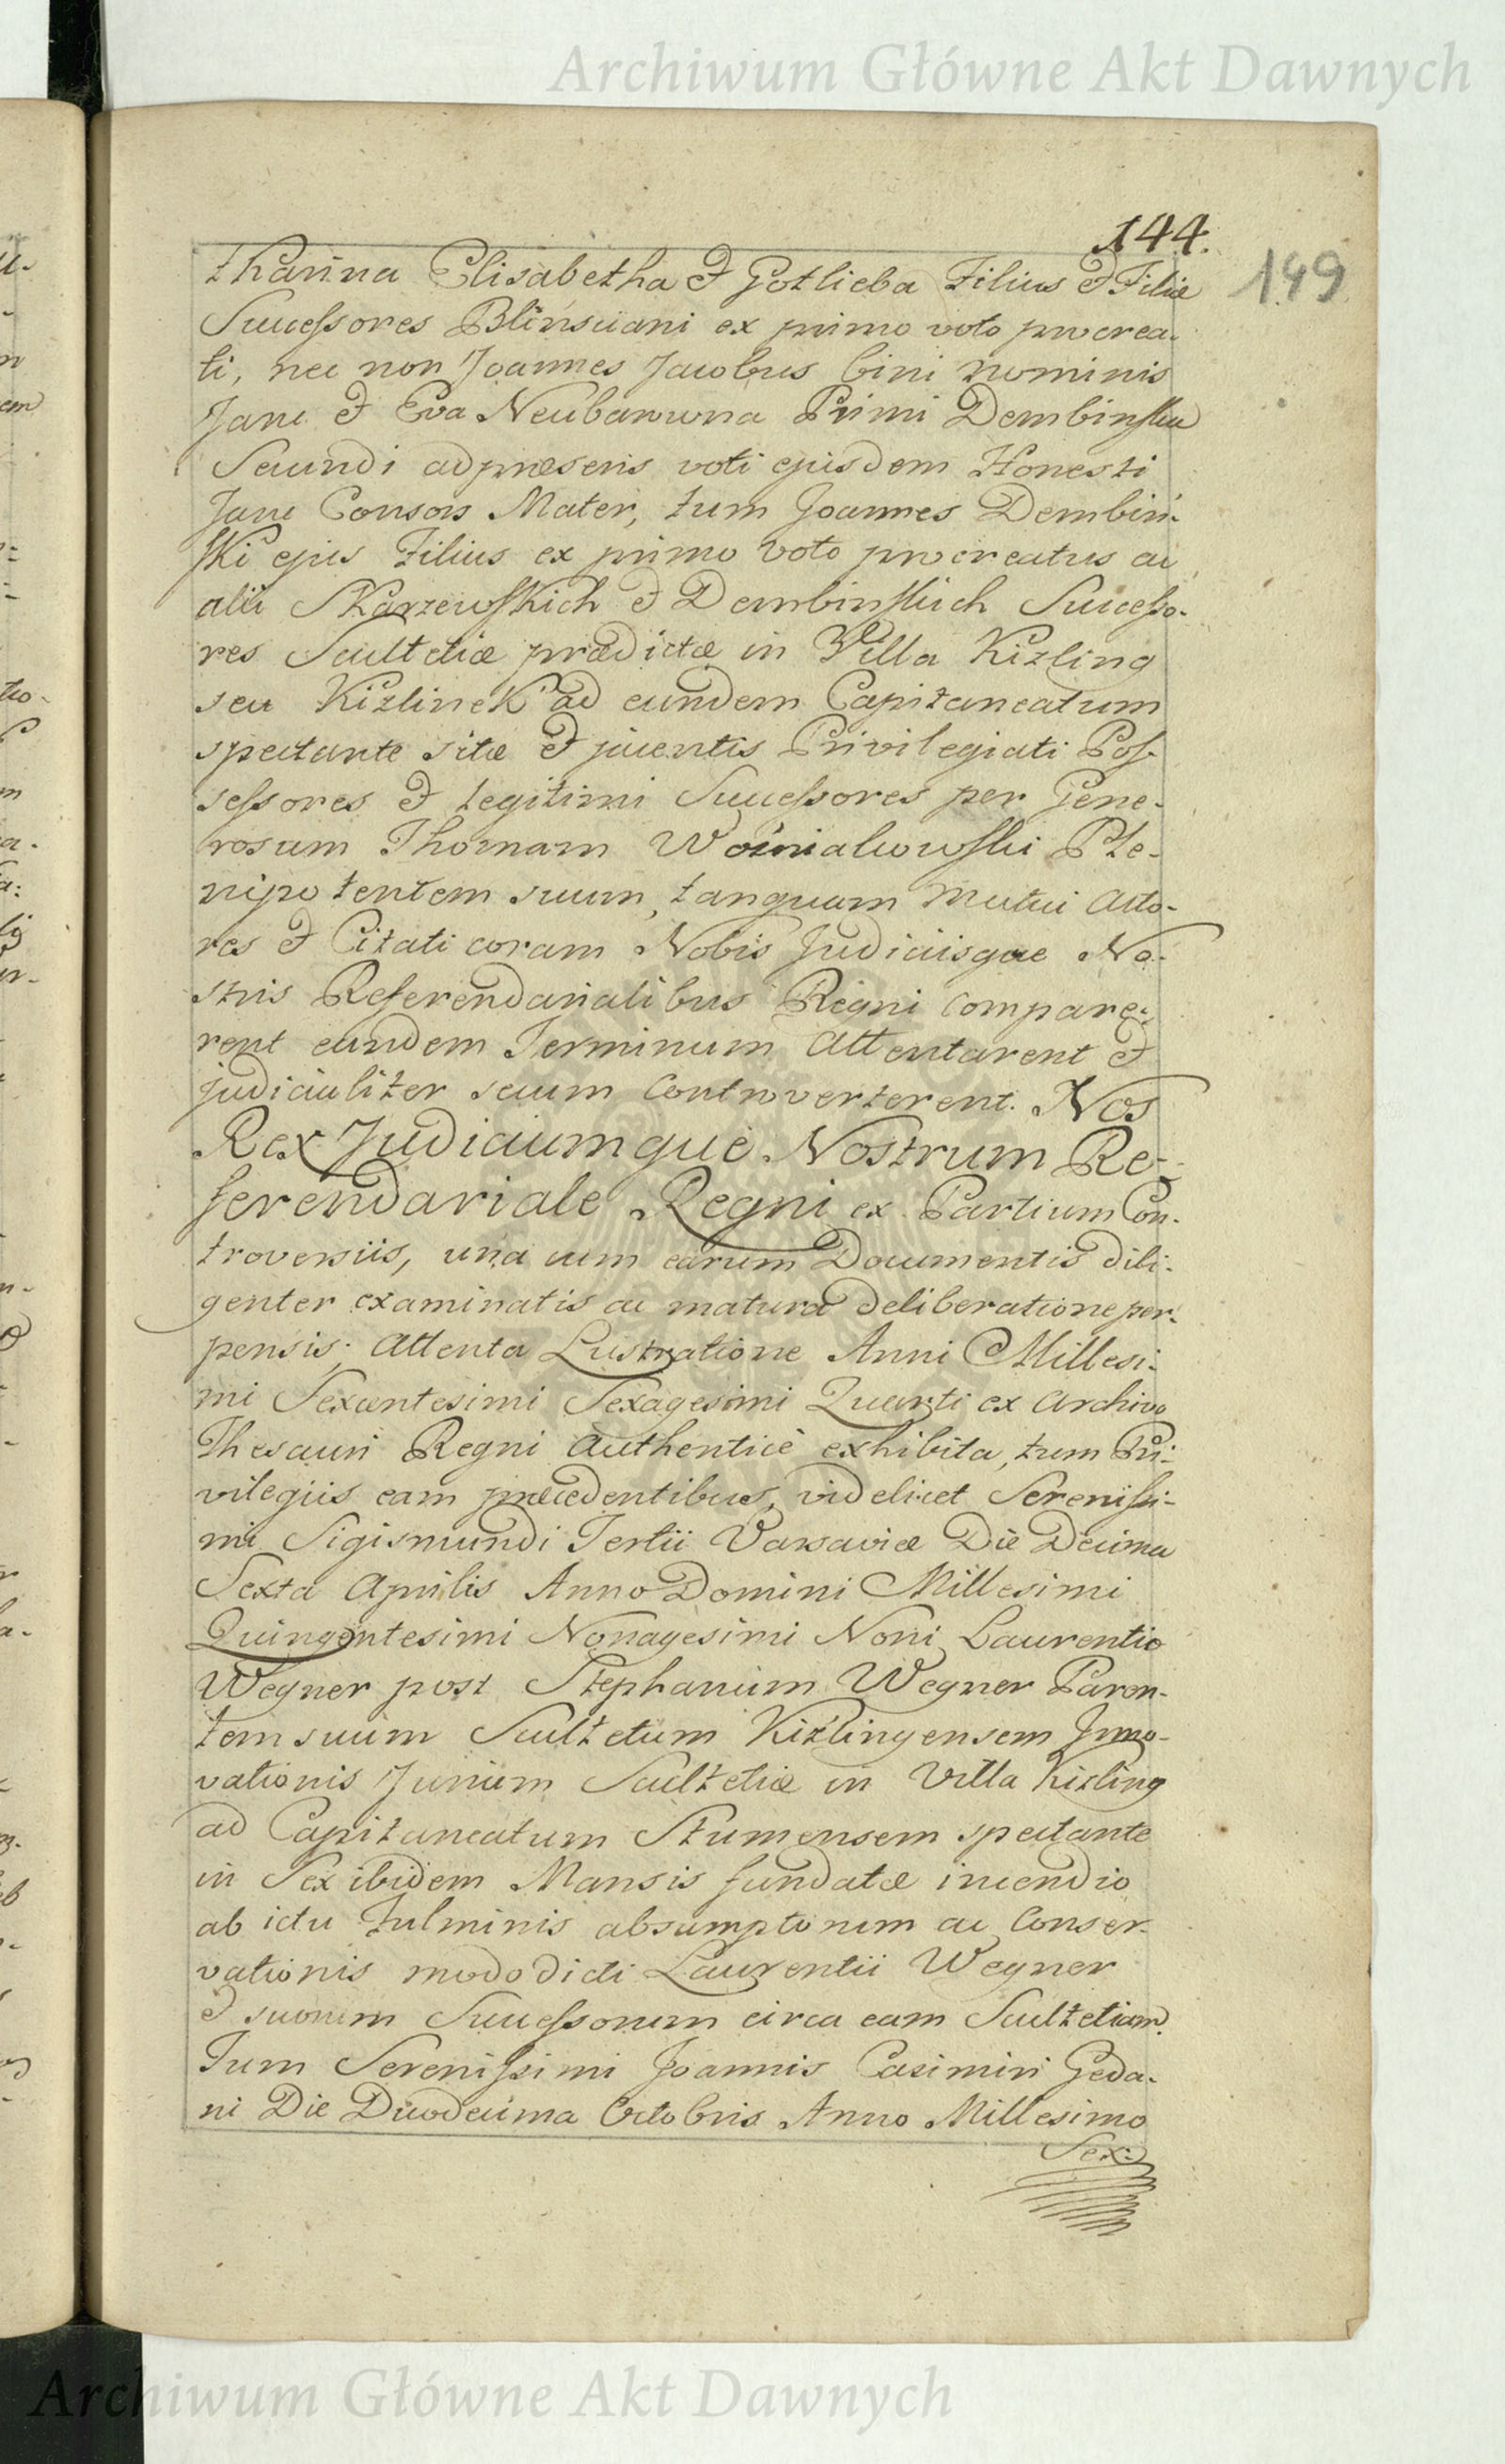 Archiwum Główne Akt Dawnych
144.
149
tharina Elisabetha & Gotlieba Filius & Filiæ
Successores Blinściani ex primo voto procrea-
ti, nec non Joannes Jacobus bini nominis
Jane & Eva Neubarowna Primi Dembinska
Secundi ad præsens voti ejusdem Honesti
Jane Consors Mater, tum Joannes Dembiń-
ski ejus Filius ex primo voto procreatus ac
alii Skarzewskich & Dembinskich Successo-
res Scultetiæ prædictæ in Villa Kizling
seu Kizlinek ad eundem Capitaneatum
spectante sitæ & juentis Privilegiati Pos-
sessores & legitimi Successores per Gene-
rosum Thomam Woźniakowski Ple-
nipotentem suum, tanquam mutui Acto-
res & Citati coram Nobis Judiciisque No-
stris Referendarialibus Regni compare-
rent eundem Terminum attentarent &
judicialiter secum controverterent. Nos
Rex Judiciumque Nostrum Re-
ferendariale Regni ex Partium Con-
troversiis, una cum earum Documentis dili-
genter examinatis ac matura deliberatione per-
pensis; Attenta Lustratione Anni Millesi-
mi Sexcentesimi Sexagesimi Quarti ex Archivo
Thesauri Regni Authentice exhibita, tum Pri-
vilegiis eam præcedentibus, videlicet Serenissi-
mi Sigismundi Tertii Varsaviæ Die Decima
Sexta Aprilis Anno Domini Millesimi
Quingentesimi Nonagesimi Noni Laurentio
Wegner post Stephanum Wegner Paren-
tem suum Scultetum Kizlingensem Inno-
vationis Jurium Scultetiæ in Villa Kizling
ad Capitaneatum Stumensem spectante
in Sex ibidem Mansis fundatæ incendio
ab ictu Fulminis absumptorum ac Conser-
vationis modo dicti Laurentii Wegner
& suorum Successorum circa eam Scultetiam.
Tum Serenissimi Joannis Casimiri Geda-
ni Die Duodecima Octobris Anno Millesimo
Sex-
Archiwum Główne Akt Dawnych